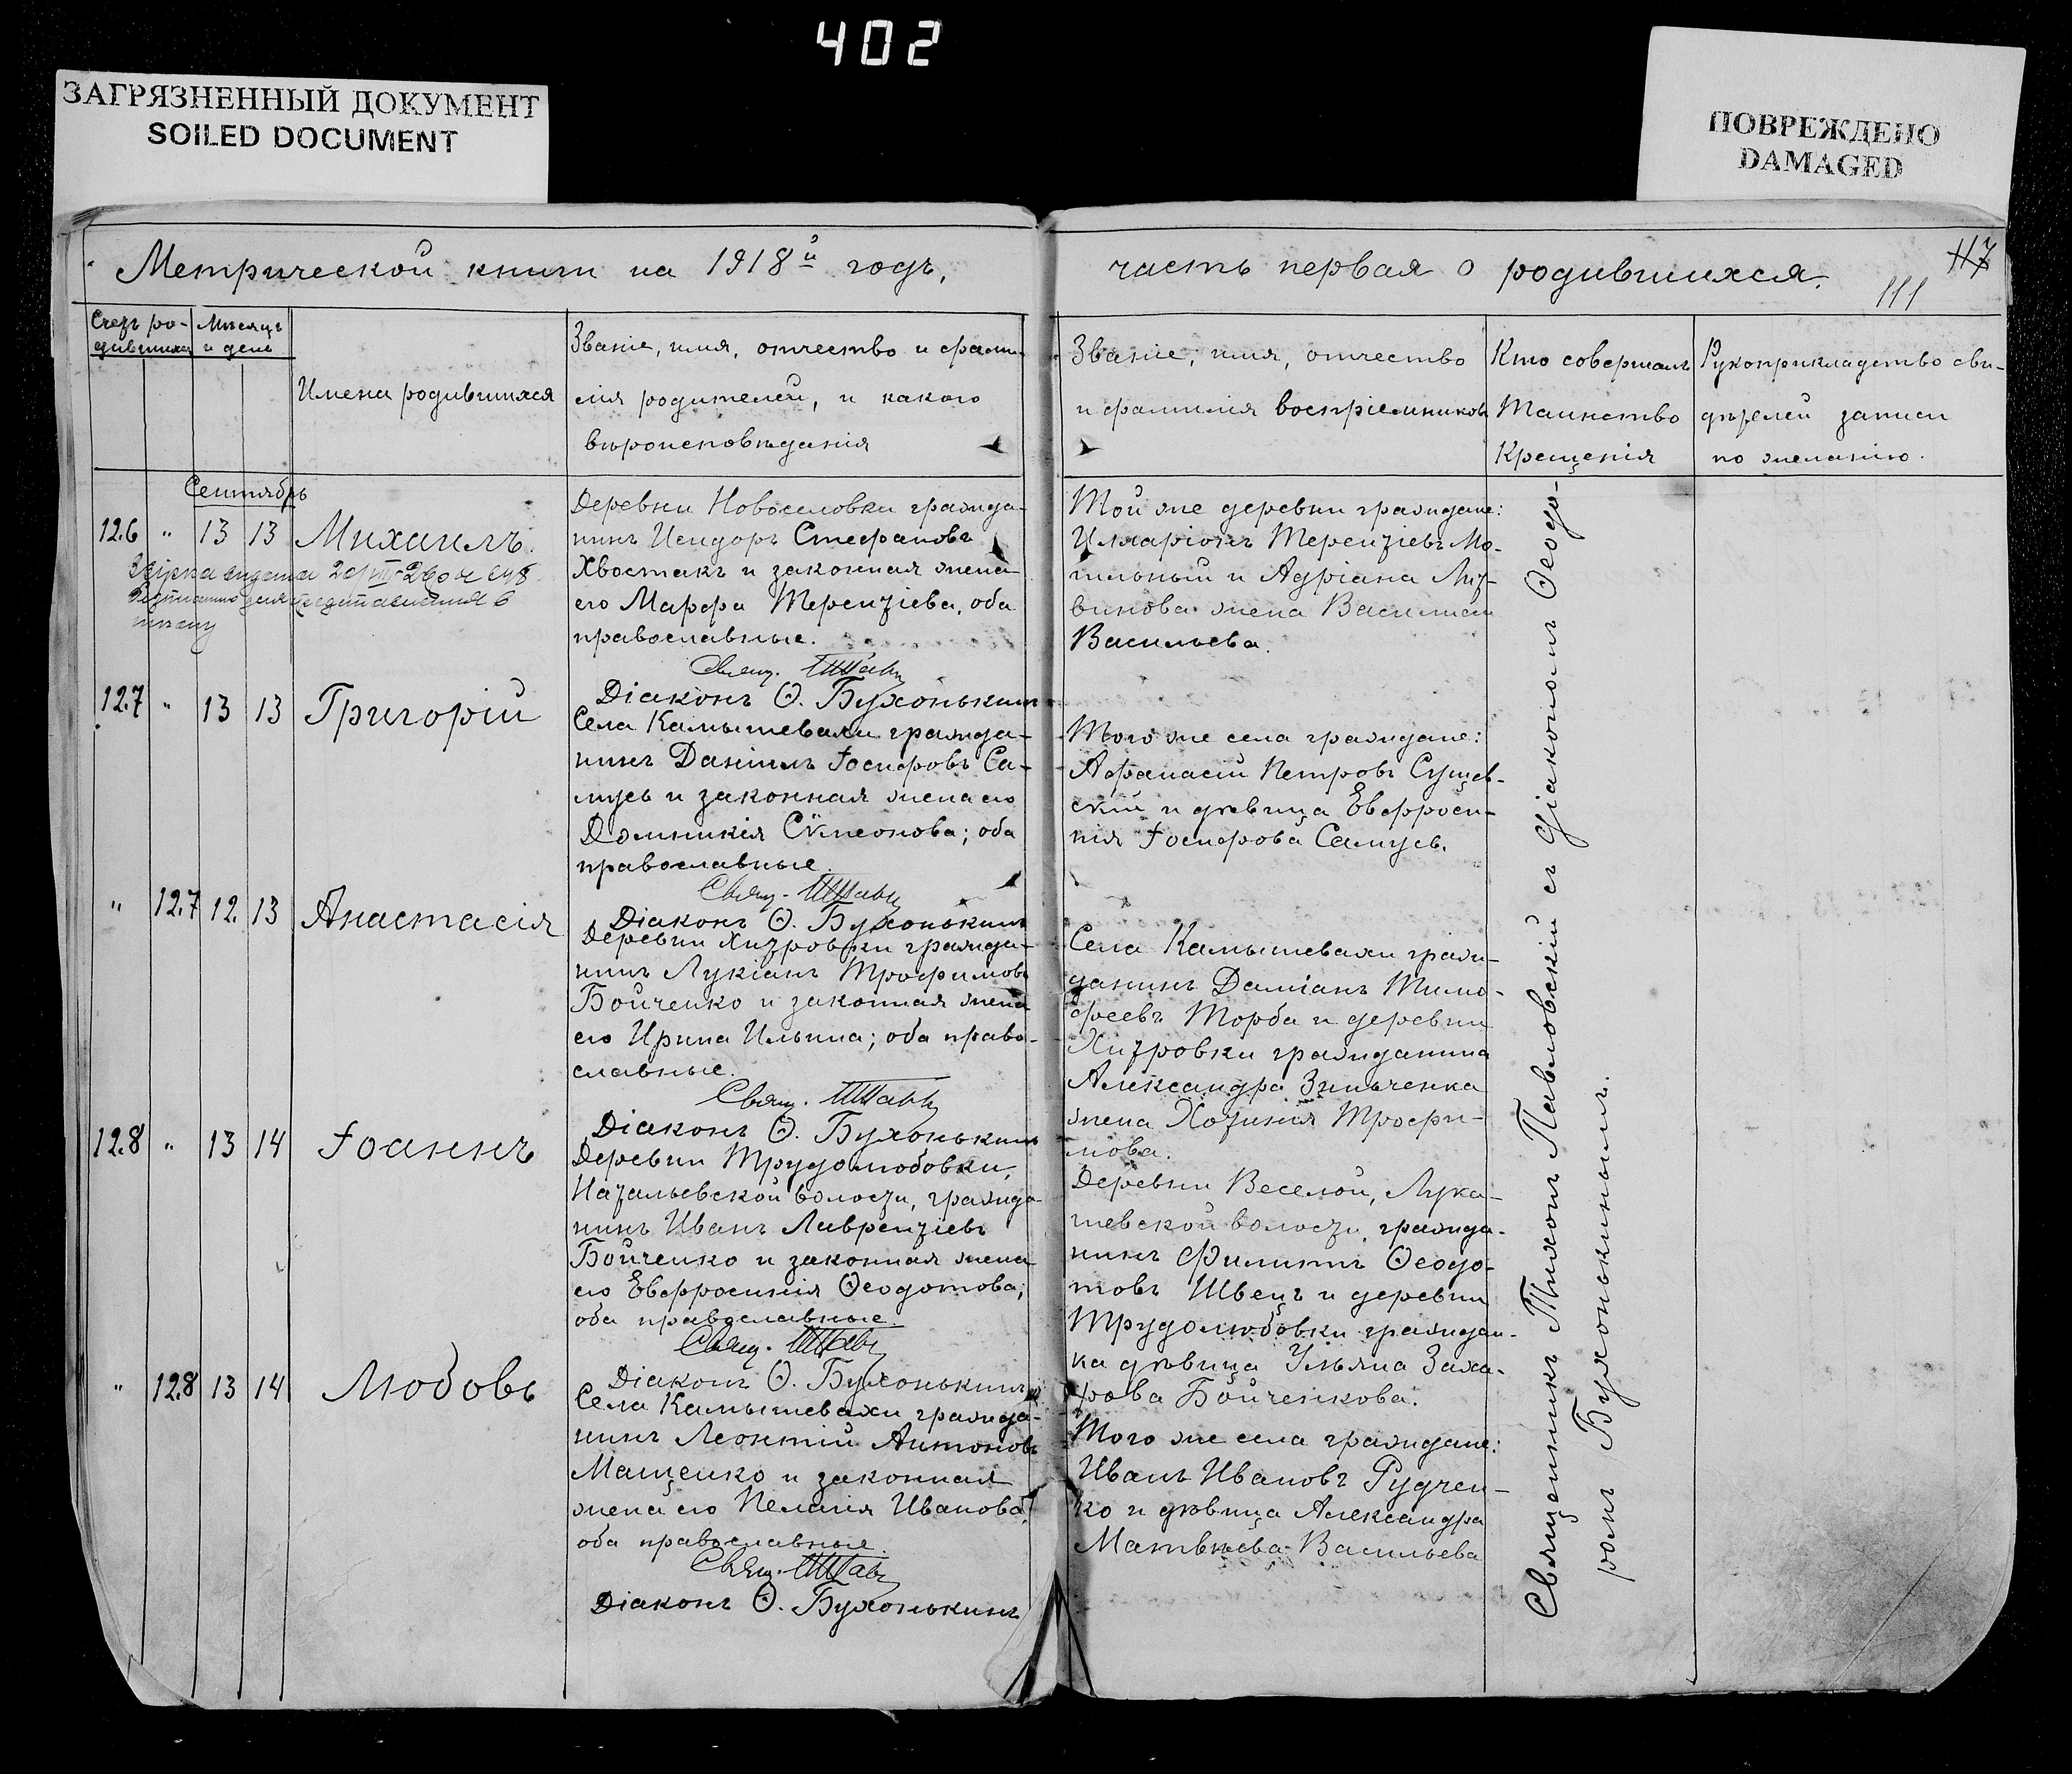 402
ЗАГРЯЗНЕННЫЙ ДОКУМЕНТ
SOILED DOCUMENT
ПОВРЕЖДЕНО
DAMAGED
Метрической книги на 1918й годъ,
часть первая о родившихся.
117
111
Счетъ ро-
дившихся
Мѣсяцъ
и день
Имена родившихся
Званіе, имя, отчество и фами-
лія родителей, и какого
вѣроисповѣданія
Званіе, имя, отчество
и фамилія воспріемниковъ
Кто совершалъ
Таинство
Крещенія
Рукоприкладство сви-
дѣтелей записи
по желанію.
Сентябрь
126 " 13 13 Михаилъ.
Деревни Новоселовки гражда-
нинъ Исидоръ Стефановъ
Хвостакъ и законная жена
его Марфа Терентіева, оба
православные.
Свящ.
Діаконъ Ѳ. Бухонькинъ
Той же деревни граждане:
Илларіонъ Терентіевъ Мо-
гильный и Адріана Лит-
винова жена Василиса
Васильева.
127 " 13 13 Григорій
Села Камышевахи гражда-
нинъ Даніилъ Іосифовъ Са-
мусь и законная жена его
Домникія Сѵмеонова; оба
православные.
Свящ.
Діаконъ Ѳ. Бухонькинъ
Того же села граждане:
Афанасій Петровъ Сущев-
скій и дѣвица Евфроси-
нія Іосифова Самусь.
" 127 12 13 Анастасія
Деревни Хитровки гражда-
нинъ Лукіанъ Трофимовъ
Бойченко и законная жена
его Ирина Ильина; оба право-
славные.
Свящ.
Діаконъ Ѳ. Бухонькинъ
Села Камышевахи граж-
данинъ Даміанъ Тимо-
феевъ Торба и деревни
Хитровки гражданина
Александра Зинченка
жена Хотиния Трофи-
мова.
128 " 13 14 Іоаннъ
Деревни Трудолюбовки,
Натальевской волости, гражда-
нинъ Иванъ Лаврентіевъ
Бойченко и законная жена
его Евфросинія Ѳеодотова;
оба православные.
Свящ.
Діаконъ Ѳ. Бухонькинъ
Деревни Веселой, Лука-
шевской волости, гражда-
нинъ Филиппъ Ѳеодо-
товъ Швецъ и деревни
Трудолюбовки граждан-
ка дѣвица Ульяна Заха-
рова Бойченкова.
" 128 13 14 Любовь
Села Камышевахи гражда-
нинъ Леонтий Антоновъ
Мащенко и законная
жена его Пелагія Иванова
оба православные.
Свящ.
Діаконъ Ѳ. Бухонькинъ
Того же села граждане:
Иванъ Ивановъ Рудчен-
ко и дѣвица Александра
Матвѣева Васильева
Священникъ Тихонъ Павловскій съ діакономъ Ѳеодо-
ромъ Бухонькинымъ.